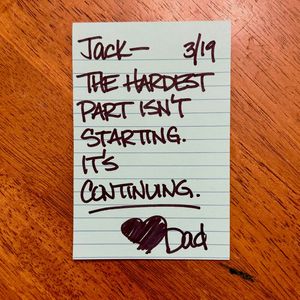 Jack— 3/19
THE HARDEST
PART ISN'T
STARTING.
IT'S
CONTINUING.
Dad